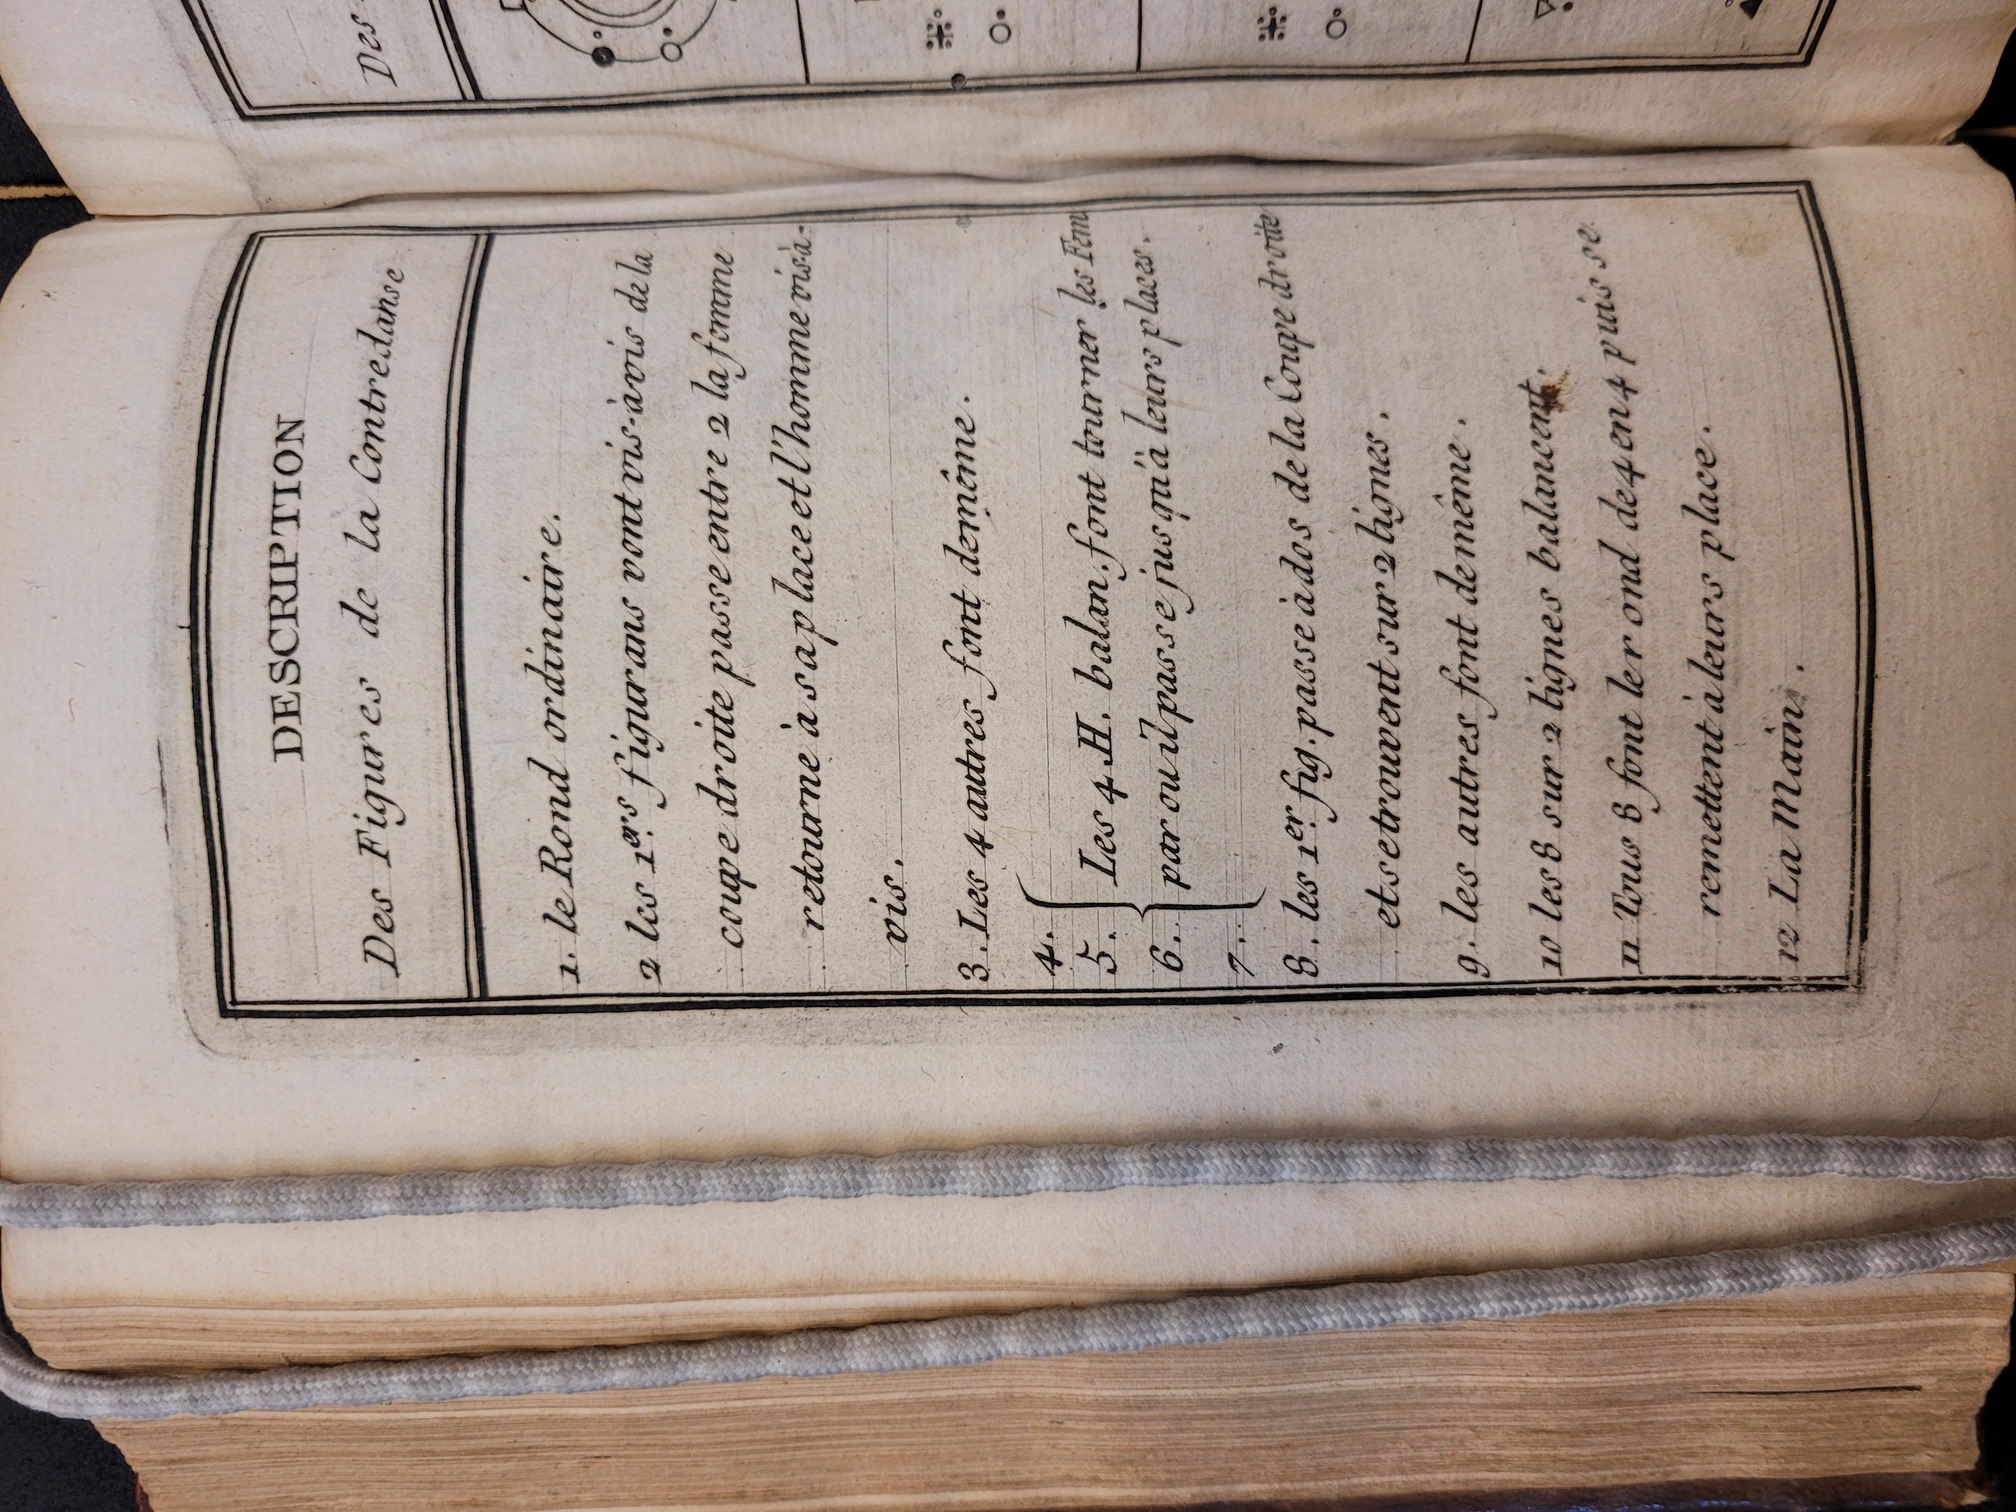 DESCRIPTION
Des Figures de la Contredanse
1. le Rond ordinaire.
2 les 1ers figurans vont vis-à vis de la
coupe droite passe entre 2 la femme
retourne à sa place et l'homme vis-à-
vis.
3. Les 4 autres font de même.
4.
5. Les 4 H. balan. font tourner les Fem
6. par ou il passe jusqu'à leurs places.
7.
8. les 1er fig. passe à dos de la Coupe droite
et se trouvent sur 2 lignes.
9. les autres font de même.
10 les 8 sur 2 lignes balancent.
11 Tous 8 font le rond de 4 en 4 puis se
remettent à leurs place.
12 La Main.
Des